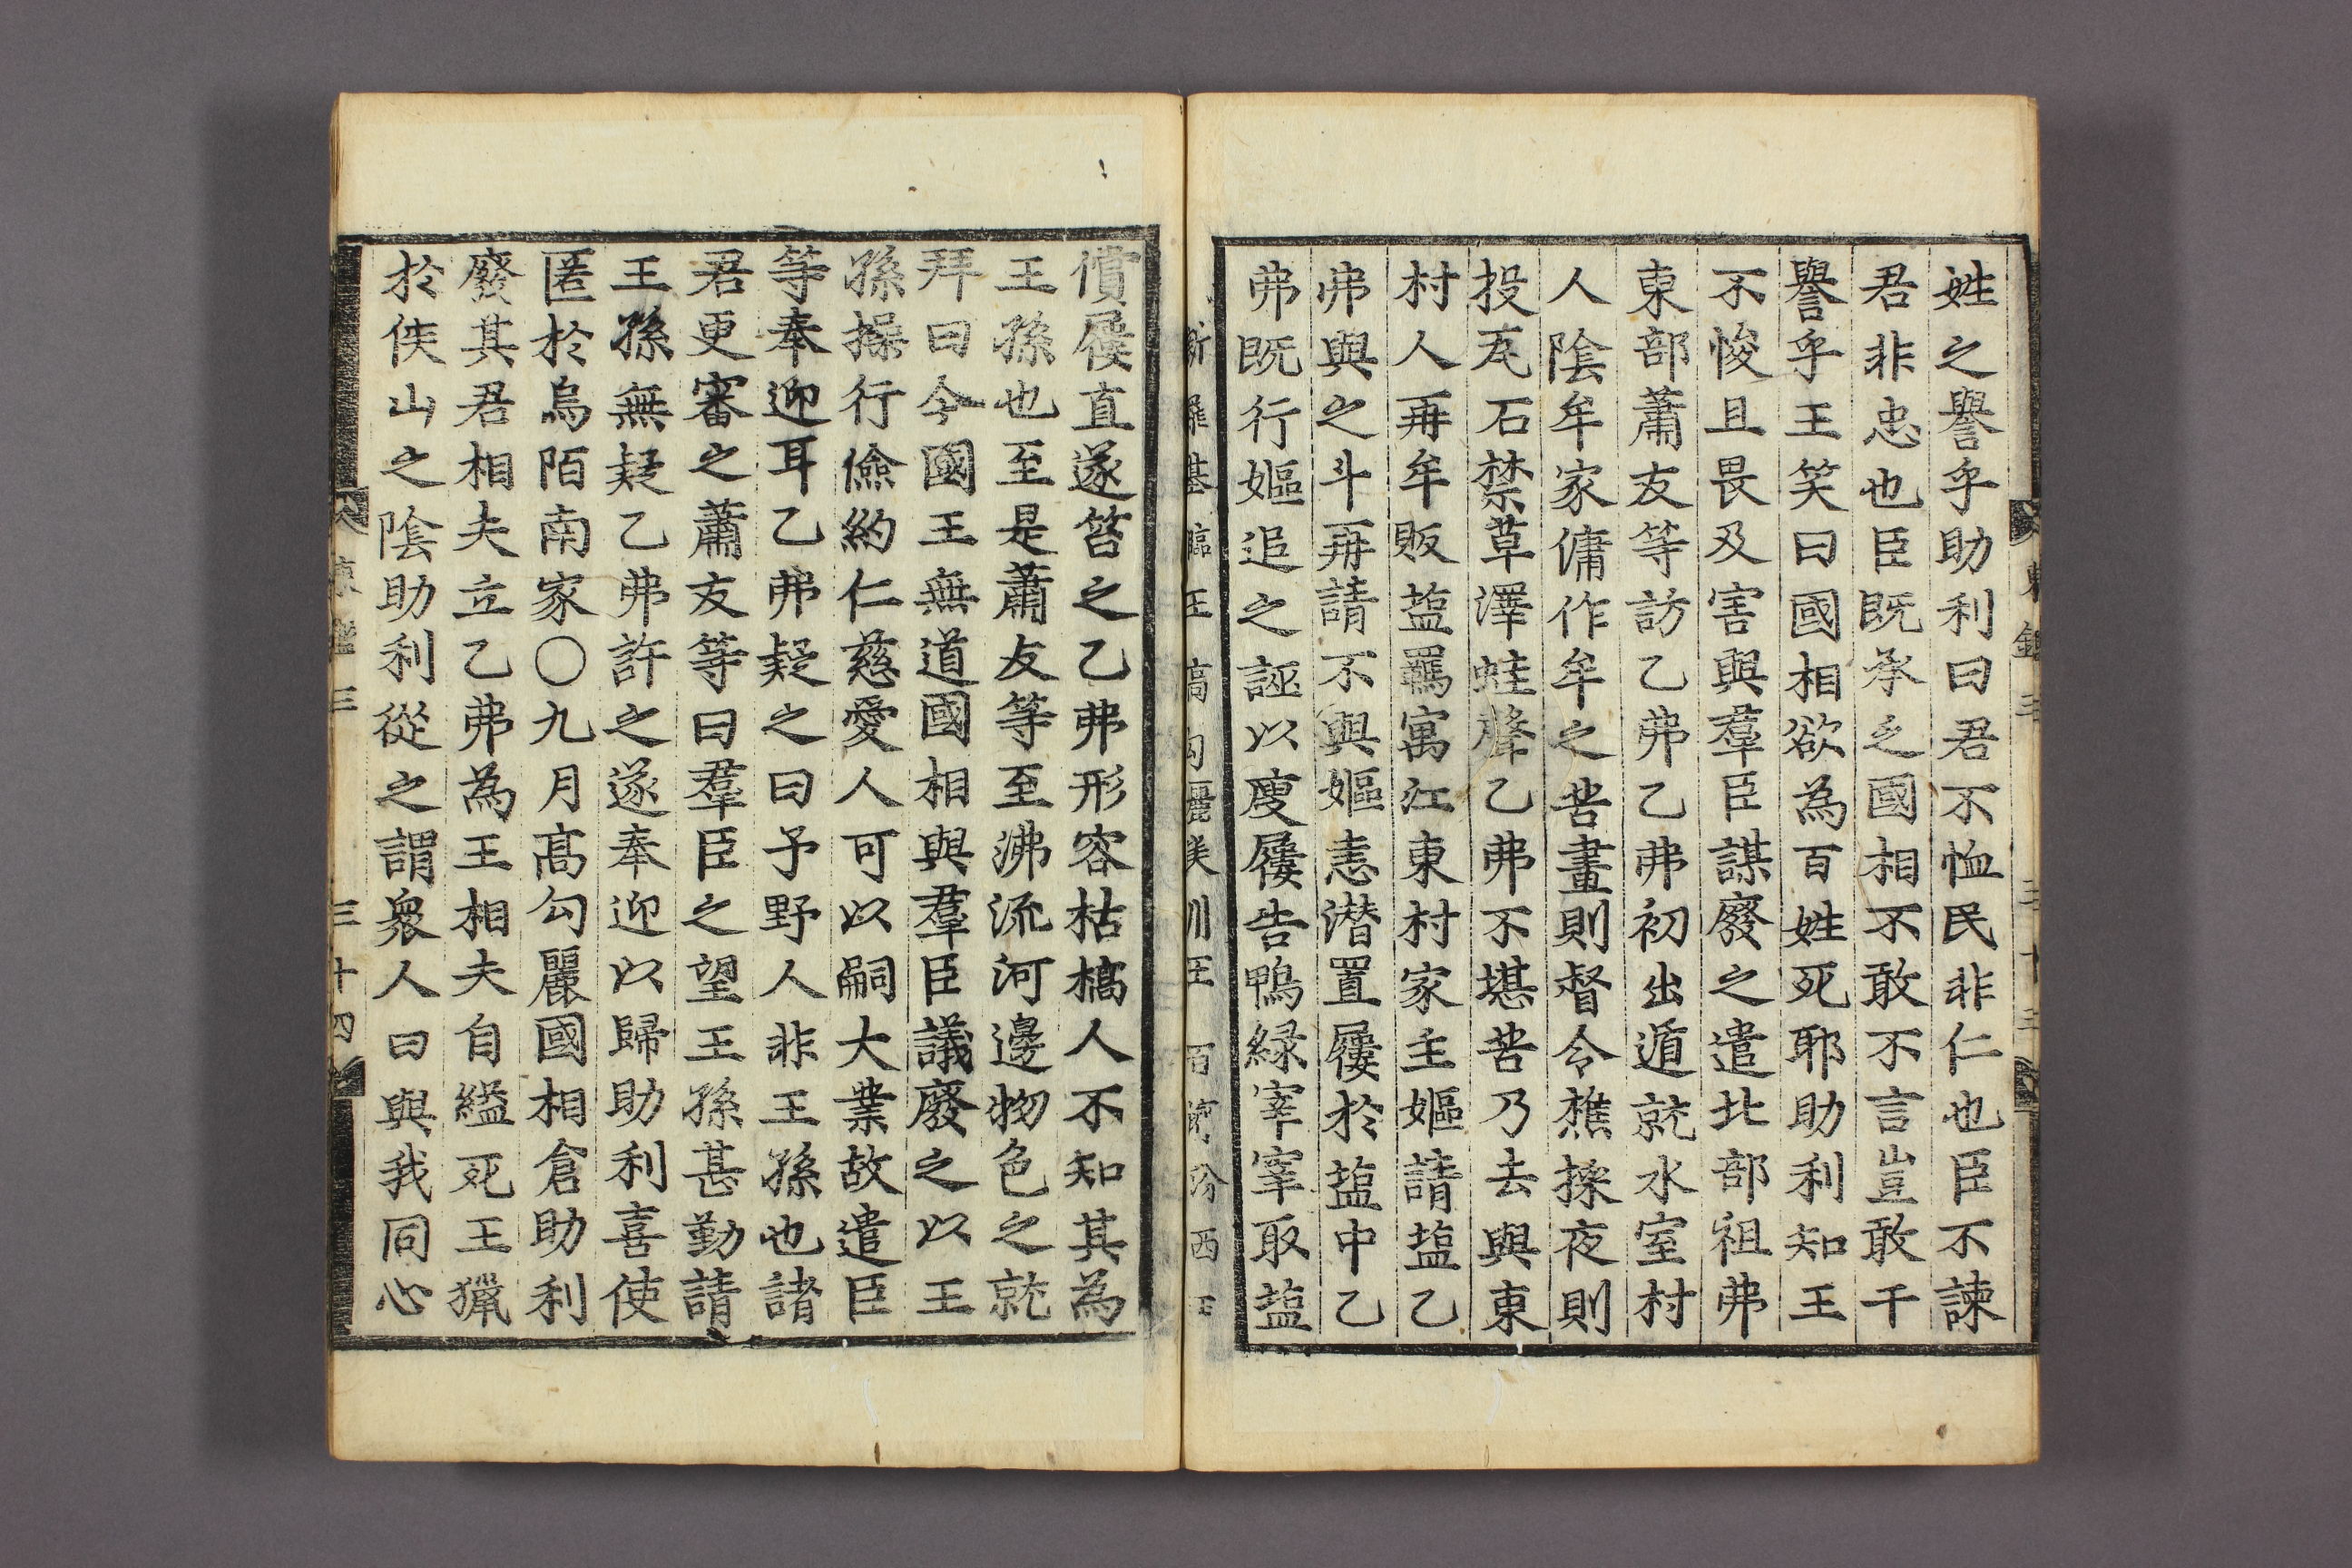 姓之譽乎助利曰君不恤民非仁也臣不諫
君非忠也臣旣承乏國相不敢不言豈敢干
譽乎王笑曰國相欲爲百姓死耶助利知王
不悛且畏及害與羣臣謀廢之遣北部祖弗
東部蕭友等訪乙弗乙弗初出遁就水室村
人陰牟家傭作牟之苦晝則督令樵採夜則
投瓦石禁草澤蛙聲乙弗不堪苦乃去與東
村人再牟販塩羈寓江東村家主嫗請塩乙
弗與之斗再請不與嫗恚潜置屨於塩中乙
弗旣行嫗追之誣以廋屨告鴨綠宰宰取塩
償屨直遂笞之乙弗形容枯槁人不知其爲
王孫也至是蕭友等至沸流河邊物色之就
拜曰今國王無道國相與羣臣議廢之以王
孫操行儉約仁慈愛人可以嗣大業故遣臣
等奉迎耳乙弗疑之曰予野人非王孫也諸
君更審之蕭友等曰羣臣之望王孫甚勤請
王孫無疑乙弗許之遂奉迎以歸助利喜使
匿於烏陌南家〇九月高勾麗國相倉助利
廢其君相夫立乙弗爲王相夫自縊死王獵
於侯山之陰助利從之謂衆人曰與我同心